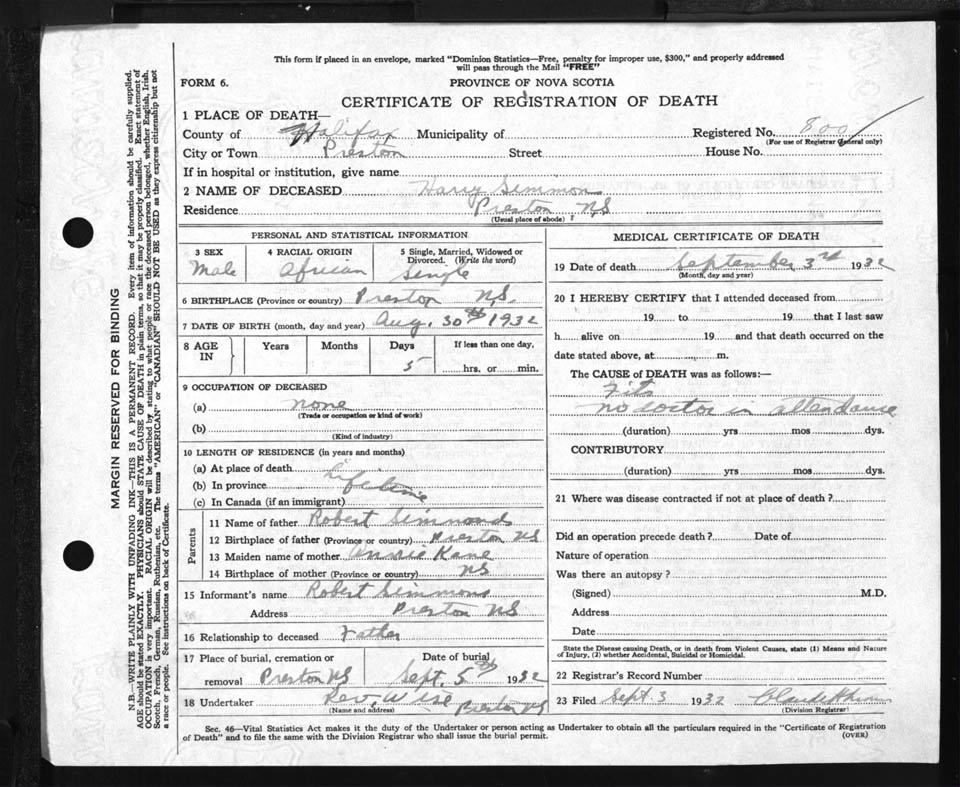 This form if placed in an envelope, marked "Dominion Statistics—Free, penalty for improper use, $300," and properly addressed
will pass through the Mail "FREE"
FORM 6.
PROVINCE OF NOVA SCOTIA
CERTIFICATE OF REGISTRATION OF DEATH
1 PLACE OF DEATH—
County of Halifax Municipality of Registered No. 800
(For use of Registrar General only)
City or Town Preston Street House No.
If in hospital or institution, give name
2 NAME OF DECEASED Harry Simmon
Residence Preston N,S
(Usual place of abode)
PERSONAL AND STATISTICAL INFORMATION
3 SEX 4 RACIAL ORIGIN 5 Single, Married, Widowed or
Divorced. (Write the word)
Male African Single
6 BIRTHPLACE (Province or country) Preston N,S.
7 DATE OF BIRTH (month, day and year) Aug. 30th 1932
8 AGE IN Years Months Days If less than one day,
5 hrs. or min.
9 OCCUPATION OF DECEASED
(a) none
(Trade or occupation or kind of work)
(b)
(Kind of industry)
10 LENGTH OF RESIDENCE (in years and months)
(a) At place of death
(b) In province Lifetime
(c) In Canada (if an immigrant)
Parents
11 Name of father Robert Simmonds
12 Birthplace of father (Province or country) Preston NS
13 Maiden name of mother Annie Kane
14 Birthplace of mother (Province or country) NS
15 Informant's name Robert Simmons
Address Preston NS
16 Relationship to deceased Father
17 Place of burial, cremation or Date of burial
removal Preston NS Sept. 5th 1932
18 Undertaker Rev. Wise Preston NS
(Name and address)
MEDICAL CERTIFICATE OF DEATH
19 Date of death September 3rd 1932
(Month, day and year)
20 I HEREBY CERTIFY that I attended deceased from
19 to 19 that I last saw
h alive on 19 and that death occurred on the
date stated above, at m.
The CAUSE of DEATH was as follows:—
Fits
no doctor in attendance
(duration) yrs mos dys.
CONTRIBUTORY
(duration) yrs mos dys.
21 Where was disease contracted if not at place of death?
Did an operation precede death? Date of
Nature of operation
Was there an autopsy?
(Signed) M.D.
Address
Date
State the Disease causing Death, or in death from Violent Causes, state (1) Means and Nature
of Injury, (2) whether Accidental, Suicidal or Homicidal.
22 Registrar's Record Number
23 Filed Sept 3 1932
(Division Registrar)
Sec. 46—Vital Statistics Act makes it the duty of the Undertaker or person acting as Undertaker to obtain all the particulars required in the "Certificate of Registration
of Death" and to file the same with the Division Registrar who shall issue the burial permit.
(OVER)
MARGIN RESERVED FOR BINDING
N.B.—WRITE PLAINLY WITH UNFADING INK—THIS IS A PERMANENT RECORD. Every item of information should be carefully supplied.
AGE should be stated EXACTLY. PHYSICIANS should STATE CAUSE OF DEATH in plain terms, so that it may be properly classified. Exact statement of
OCCUPATION is very important. RACIAL ORIGIN will be described by stating to what people or race the deceased person belonged, whether English, Irish,
Scotch, French, German, Russian, Ruthenian, etc. The terms "AMERICAN" or "CANADIAN" SHOULD NOT BE USED as they express citizenship but not
a race or people. See instructions on back of Certificate.